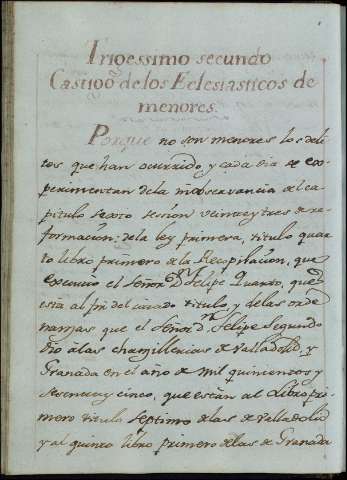 Trigessimo secundo
Castigo de los Eclesiasticos de
menores.
Porque no son menores los deli
tos que han ocurrido y cada dia se ex
perimentan de la inobservancia del ca
pitulo sexto sesion veinte y tres de re
formacion: de la ley primera, titulo quar
to libro primero de la Recopilacion, que
el Señor Dn Felipe Quarto, que
está al fin del citado titulo y de las orde
nanzas que el Señor Dn Felipe Segundo
dio á las changillerias de Valladolid, y
Granada en el año de mil quinientos y
sesenta y cinco, que están al Libro pri
mero titulo septimo de las de Valladolid
y al quinto libro primero de las de Granada